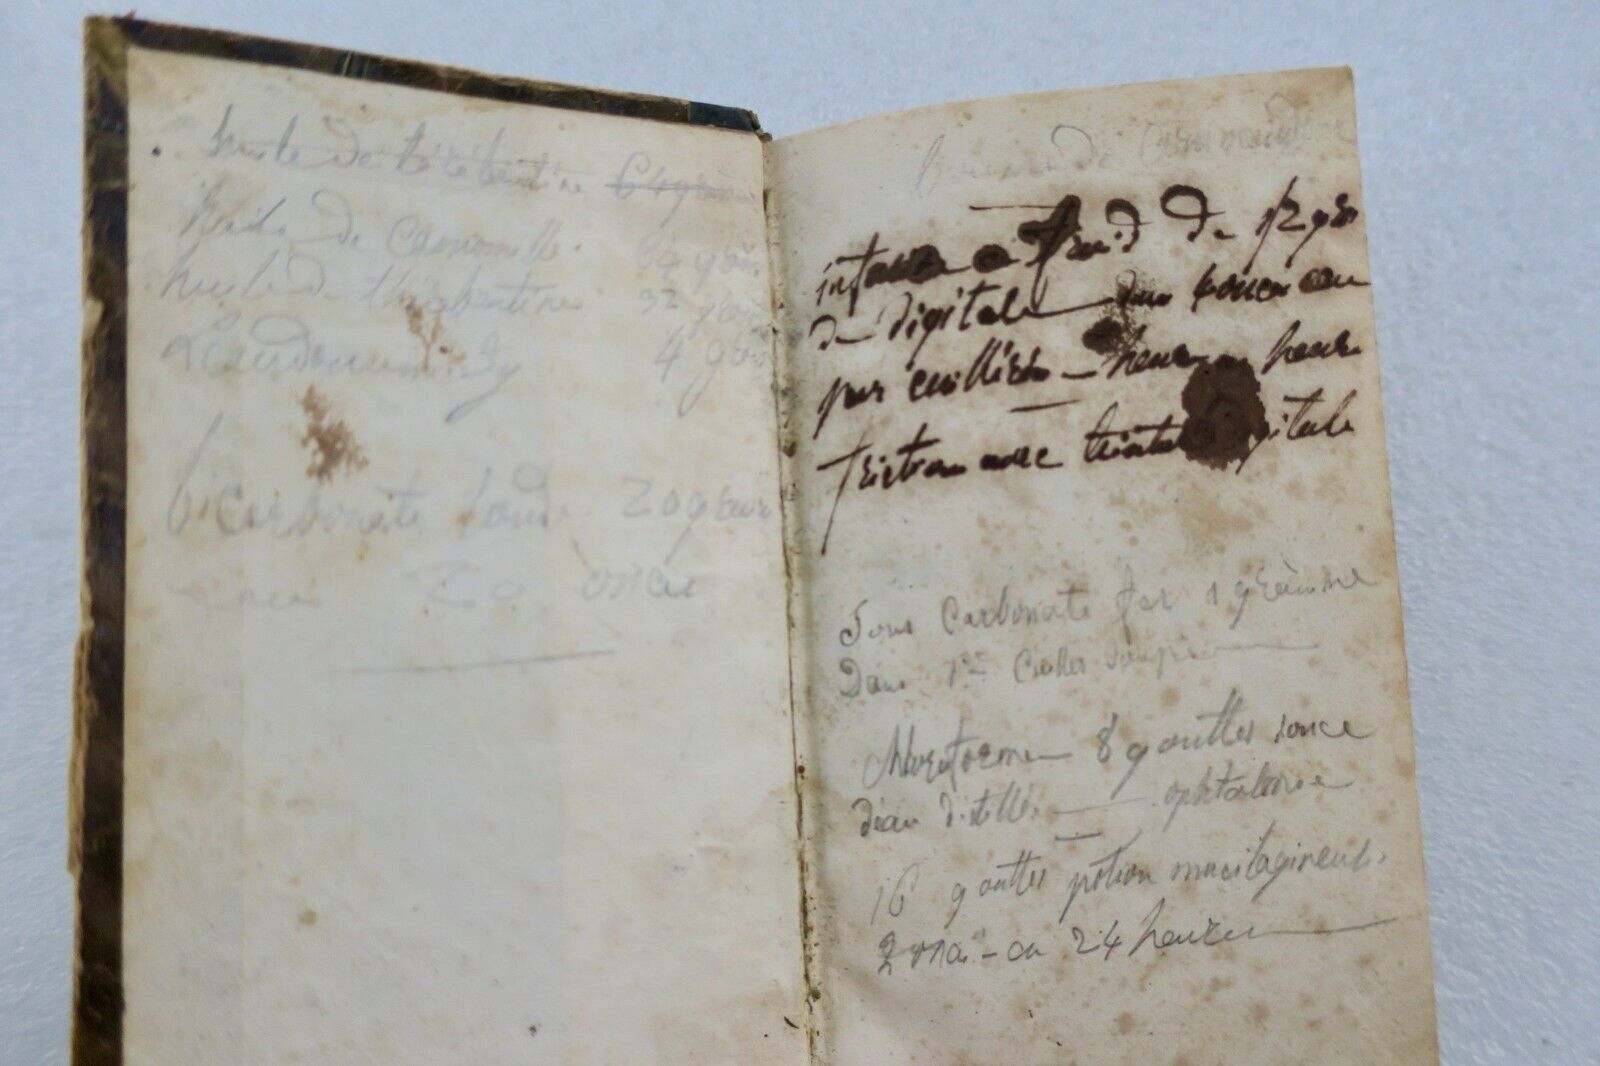 huile de térébentine 64 gram
huile de Camomille 64 gram
huile de thérébentine 32 gram
Laudanum Sy 4 gram
biCarbonate Soude 20 gram
20 onces
baume de
infusion a froid de 12 grs
de digitale dans eau
par cuillérée heure en heure
friction avec teinture digitale
Sous Carbonate fer 1 gramme
Dans 1re Cuiller soupe
chloroforme 8 gouttes 1 once
d'eau distillée ophtalmie
16 gouttes potion mucilagineuse
2 onces en 24 heures